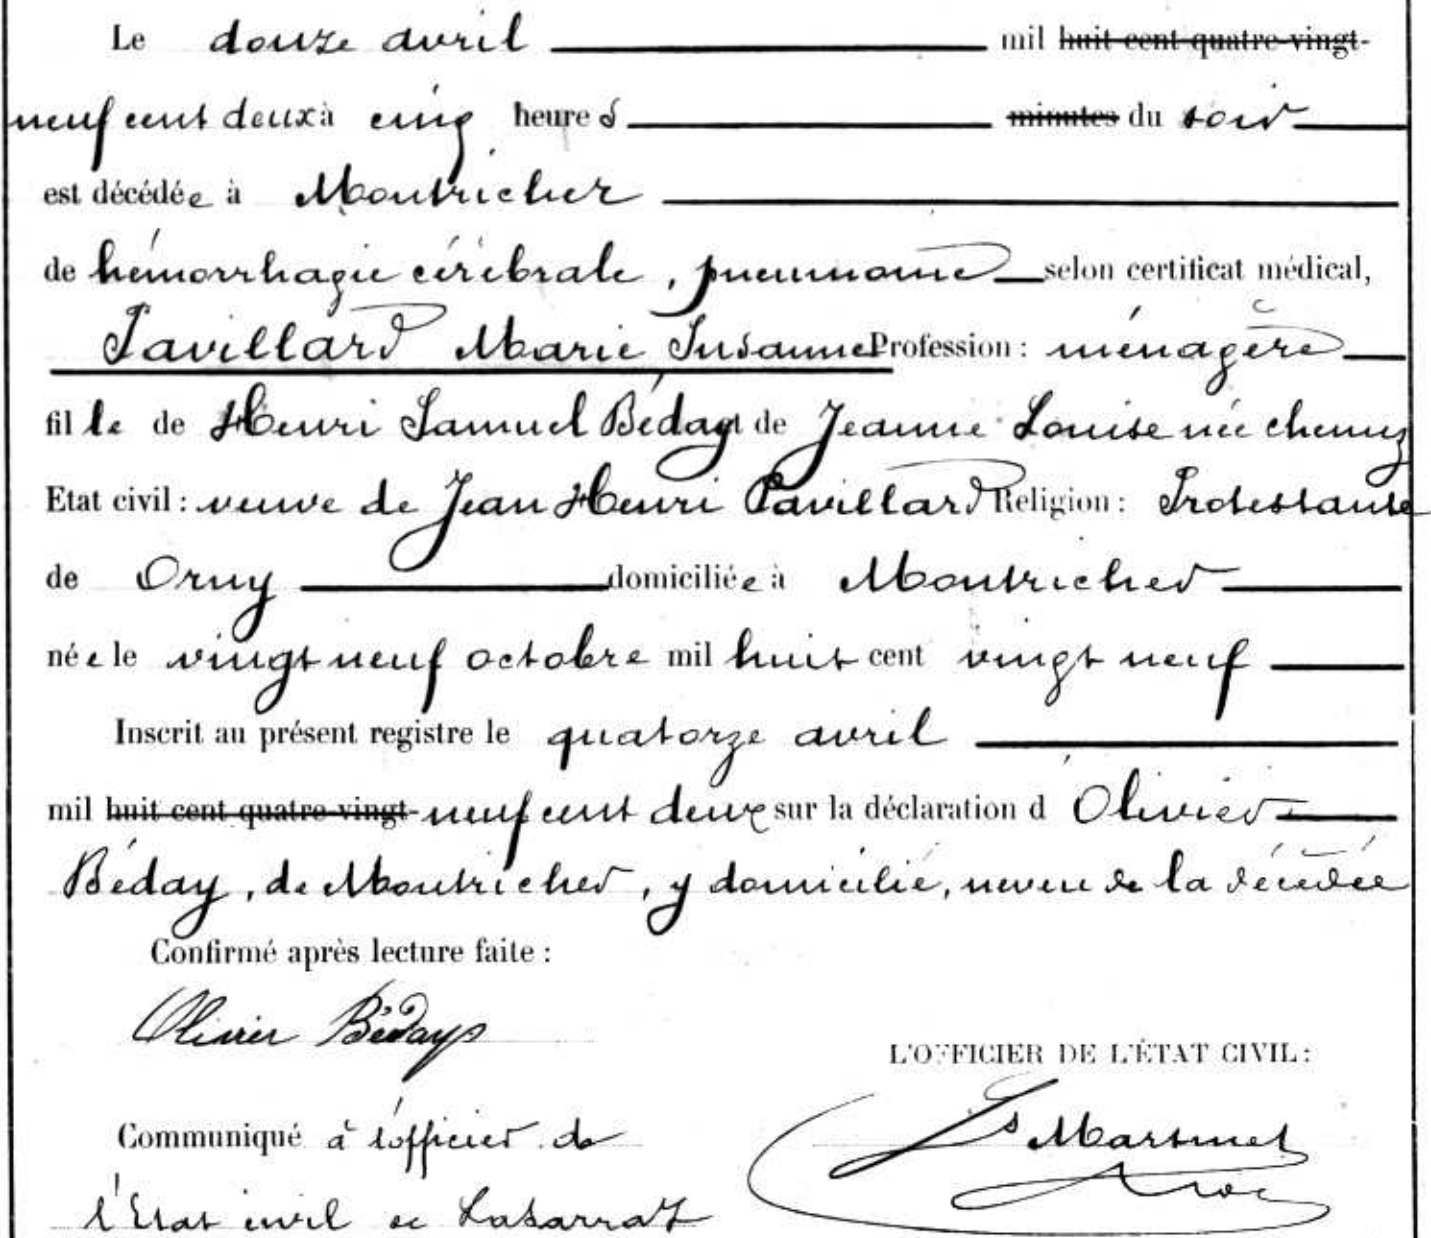 Le douze avril mil huit cent quatre-vingt-
neuf cent deux à cinq heures minutes du soir
est décédée à Montricher
de hémorrhagie cérébrale, pneumonie selon certificat médical,
Pavillard Marie Susanne Profession : ménagère
fille de Henri Samuel Béday et de Jeanne Louise née Chenuz
Etat civil : veuve de Jean Henri Pavillard Religion : Protestante
de Orny domiciliée à Montricher
née le vingt neuf octobre mil huit cent vingt neuf
Inscrit au présent registre le quatorze avril
mil huit cent quatre-vingt- neuf cent deux sur la déclaration d Olivier
Béday, de Montricher, y domicilié, neveu de la décédée
Confirmé après lecture faite :
Olivier Béday
L'OFFICIER DE L'ÉTAT CIVIL :
Ls Martinet
Communiqué à l'officier de
l'Etat civil de Lasarraz